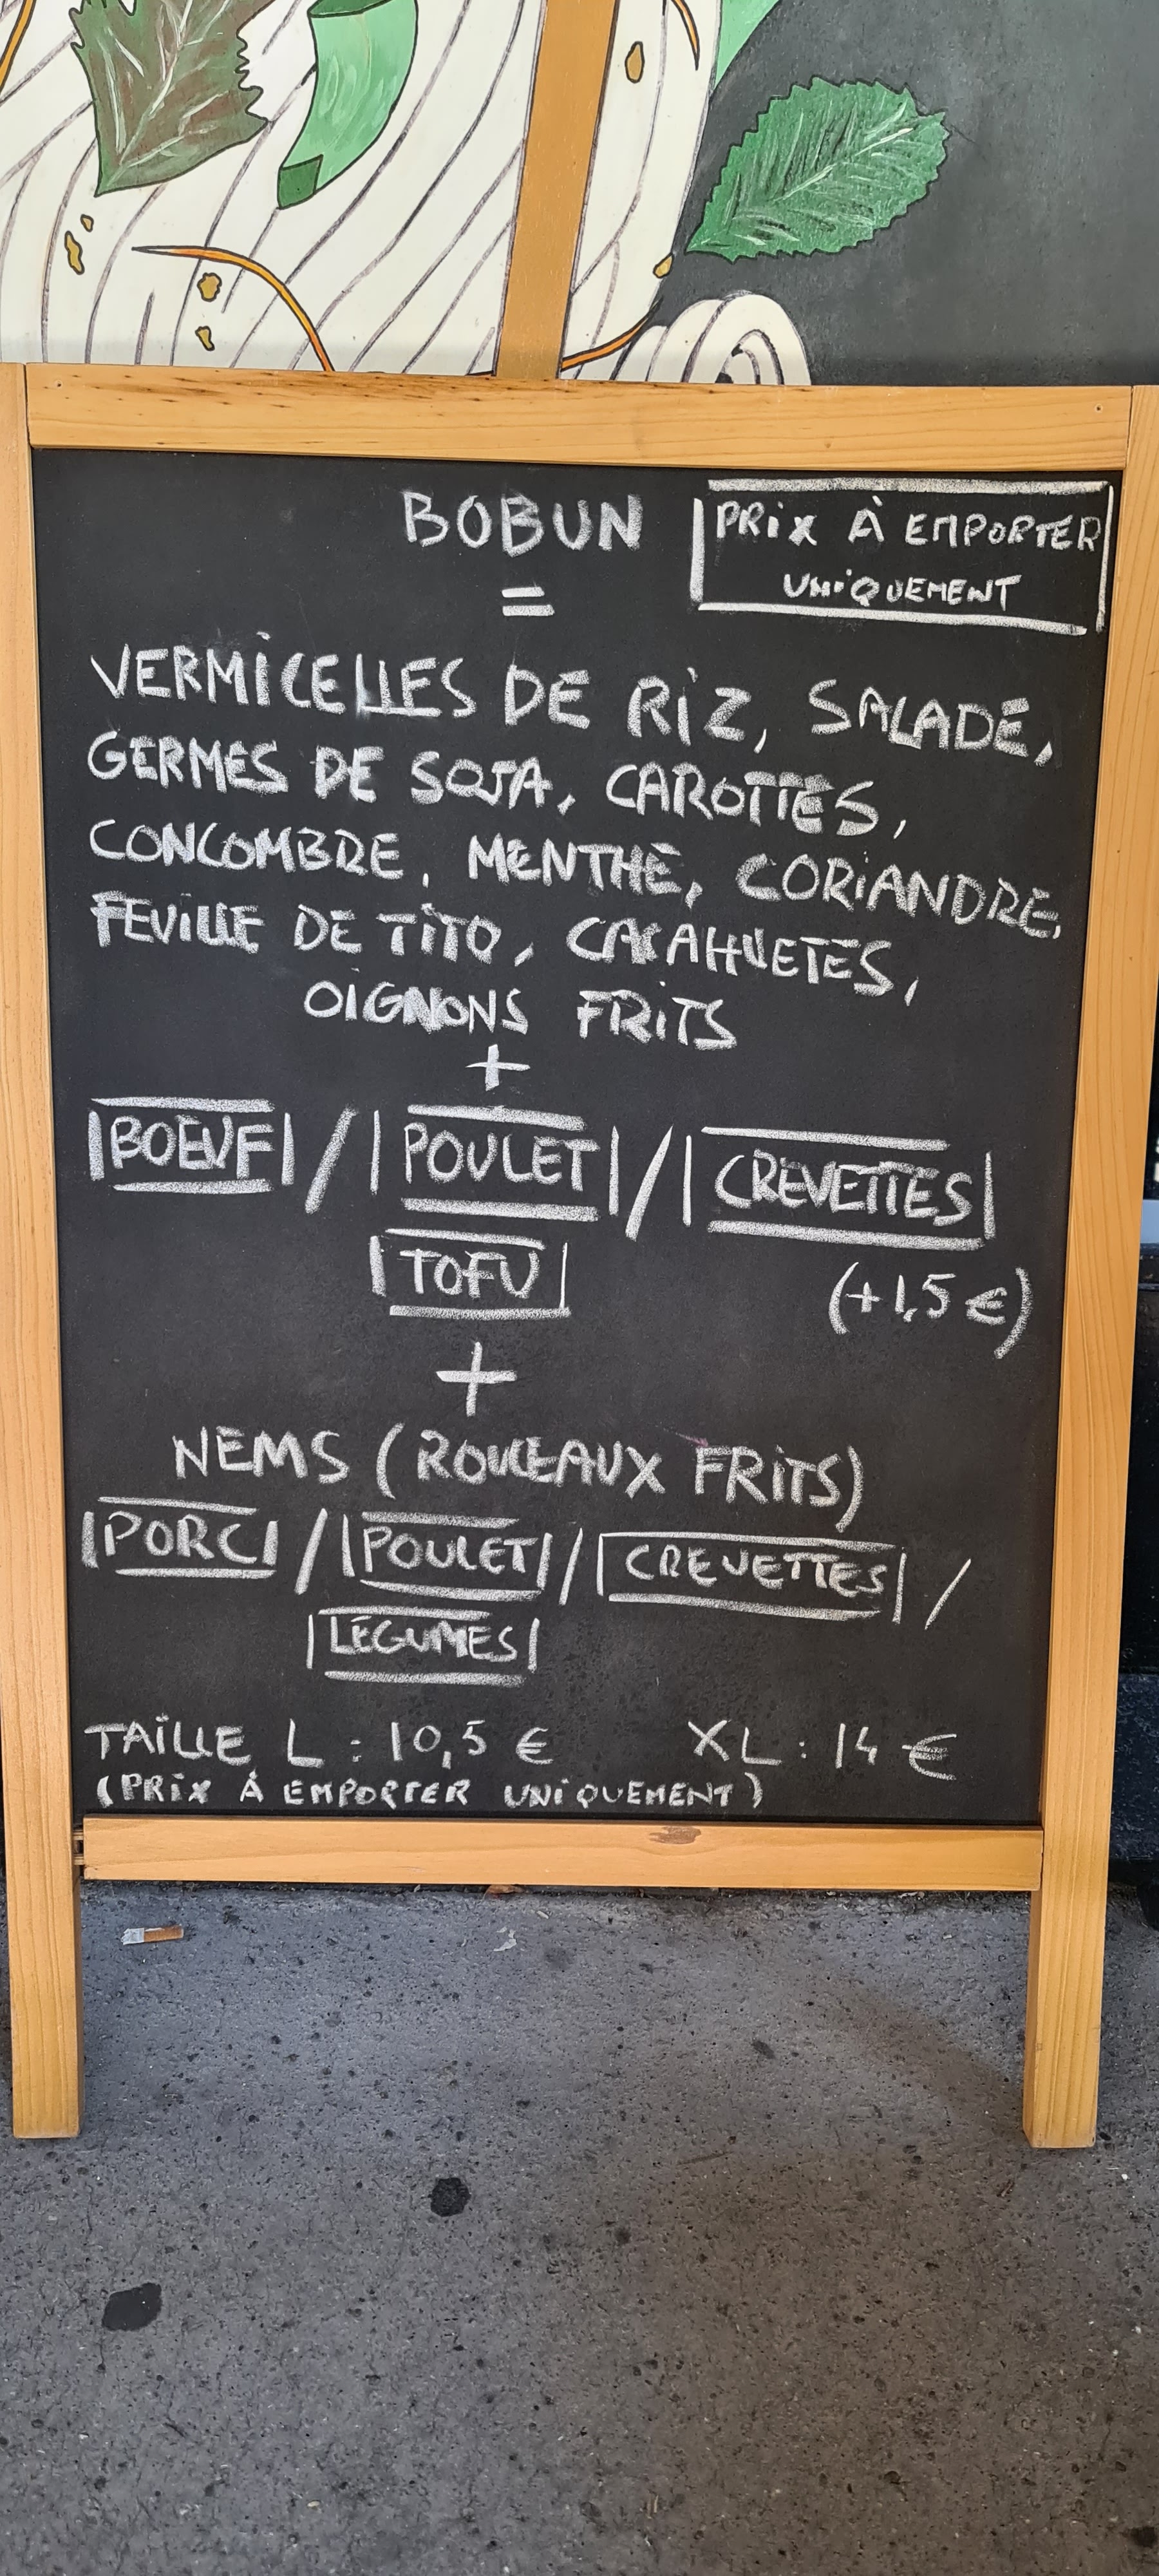 BOBUN
PRIX À EMPORTER
UNIQUEMENT
=
VERMICELLES DE RIZ, SALADE,
GERMES DE SOJA, CAROTTES,
CONCOMBRE, MENTHE, CORIANDRE,
FEUILLE DE TITO, CACAHUETES,
OIGNONS FRITS
+
BOEUF / POULET / CREVETTES
TOFU (+1,5 €)
+
NEMS (ROULEAUX FRITS)
PORC / POULET / CREVETTES /
LÉGUMES
TAILLE L : 10,5 € XL : 14 €
(PRIX À EMPORTER UNIQUEMENT)